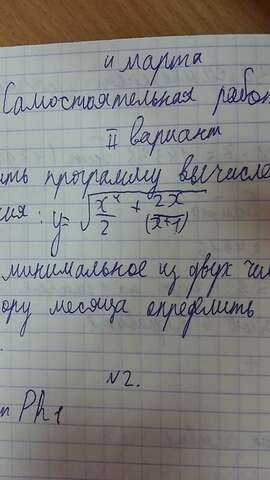 11 марта
Самостоятельная рабо
II вариант
ить программу вычисле
ия: y=√(x⁴/2 + 2x/(x+1))
минимальное из двух чи
ору месяца определить
№2.
m Ph1